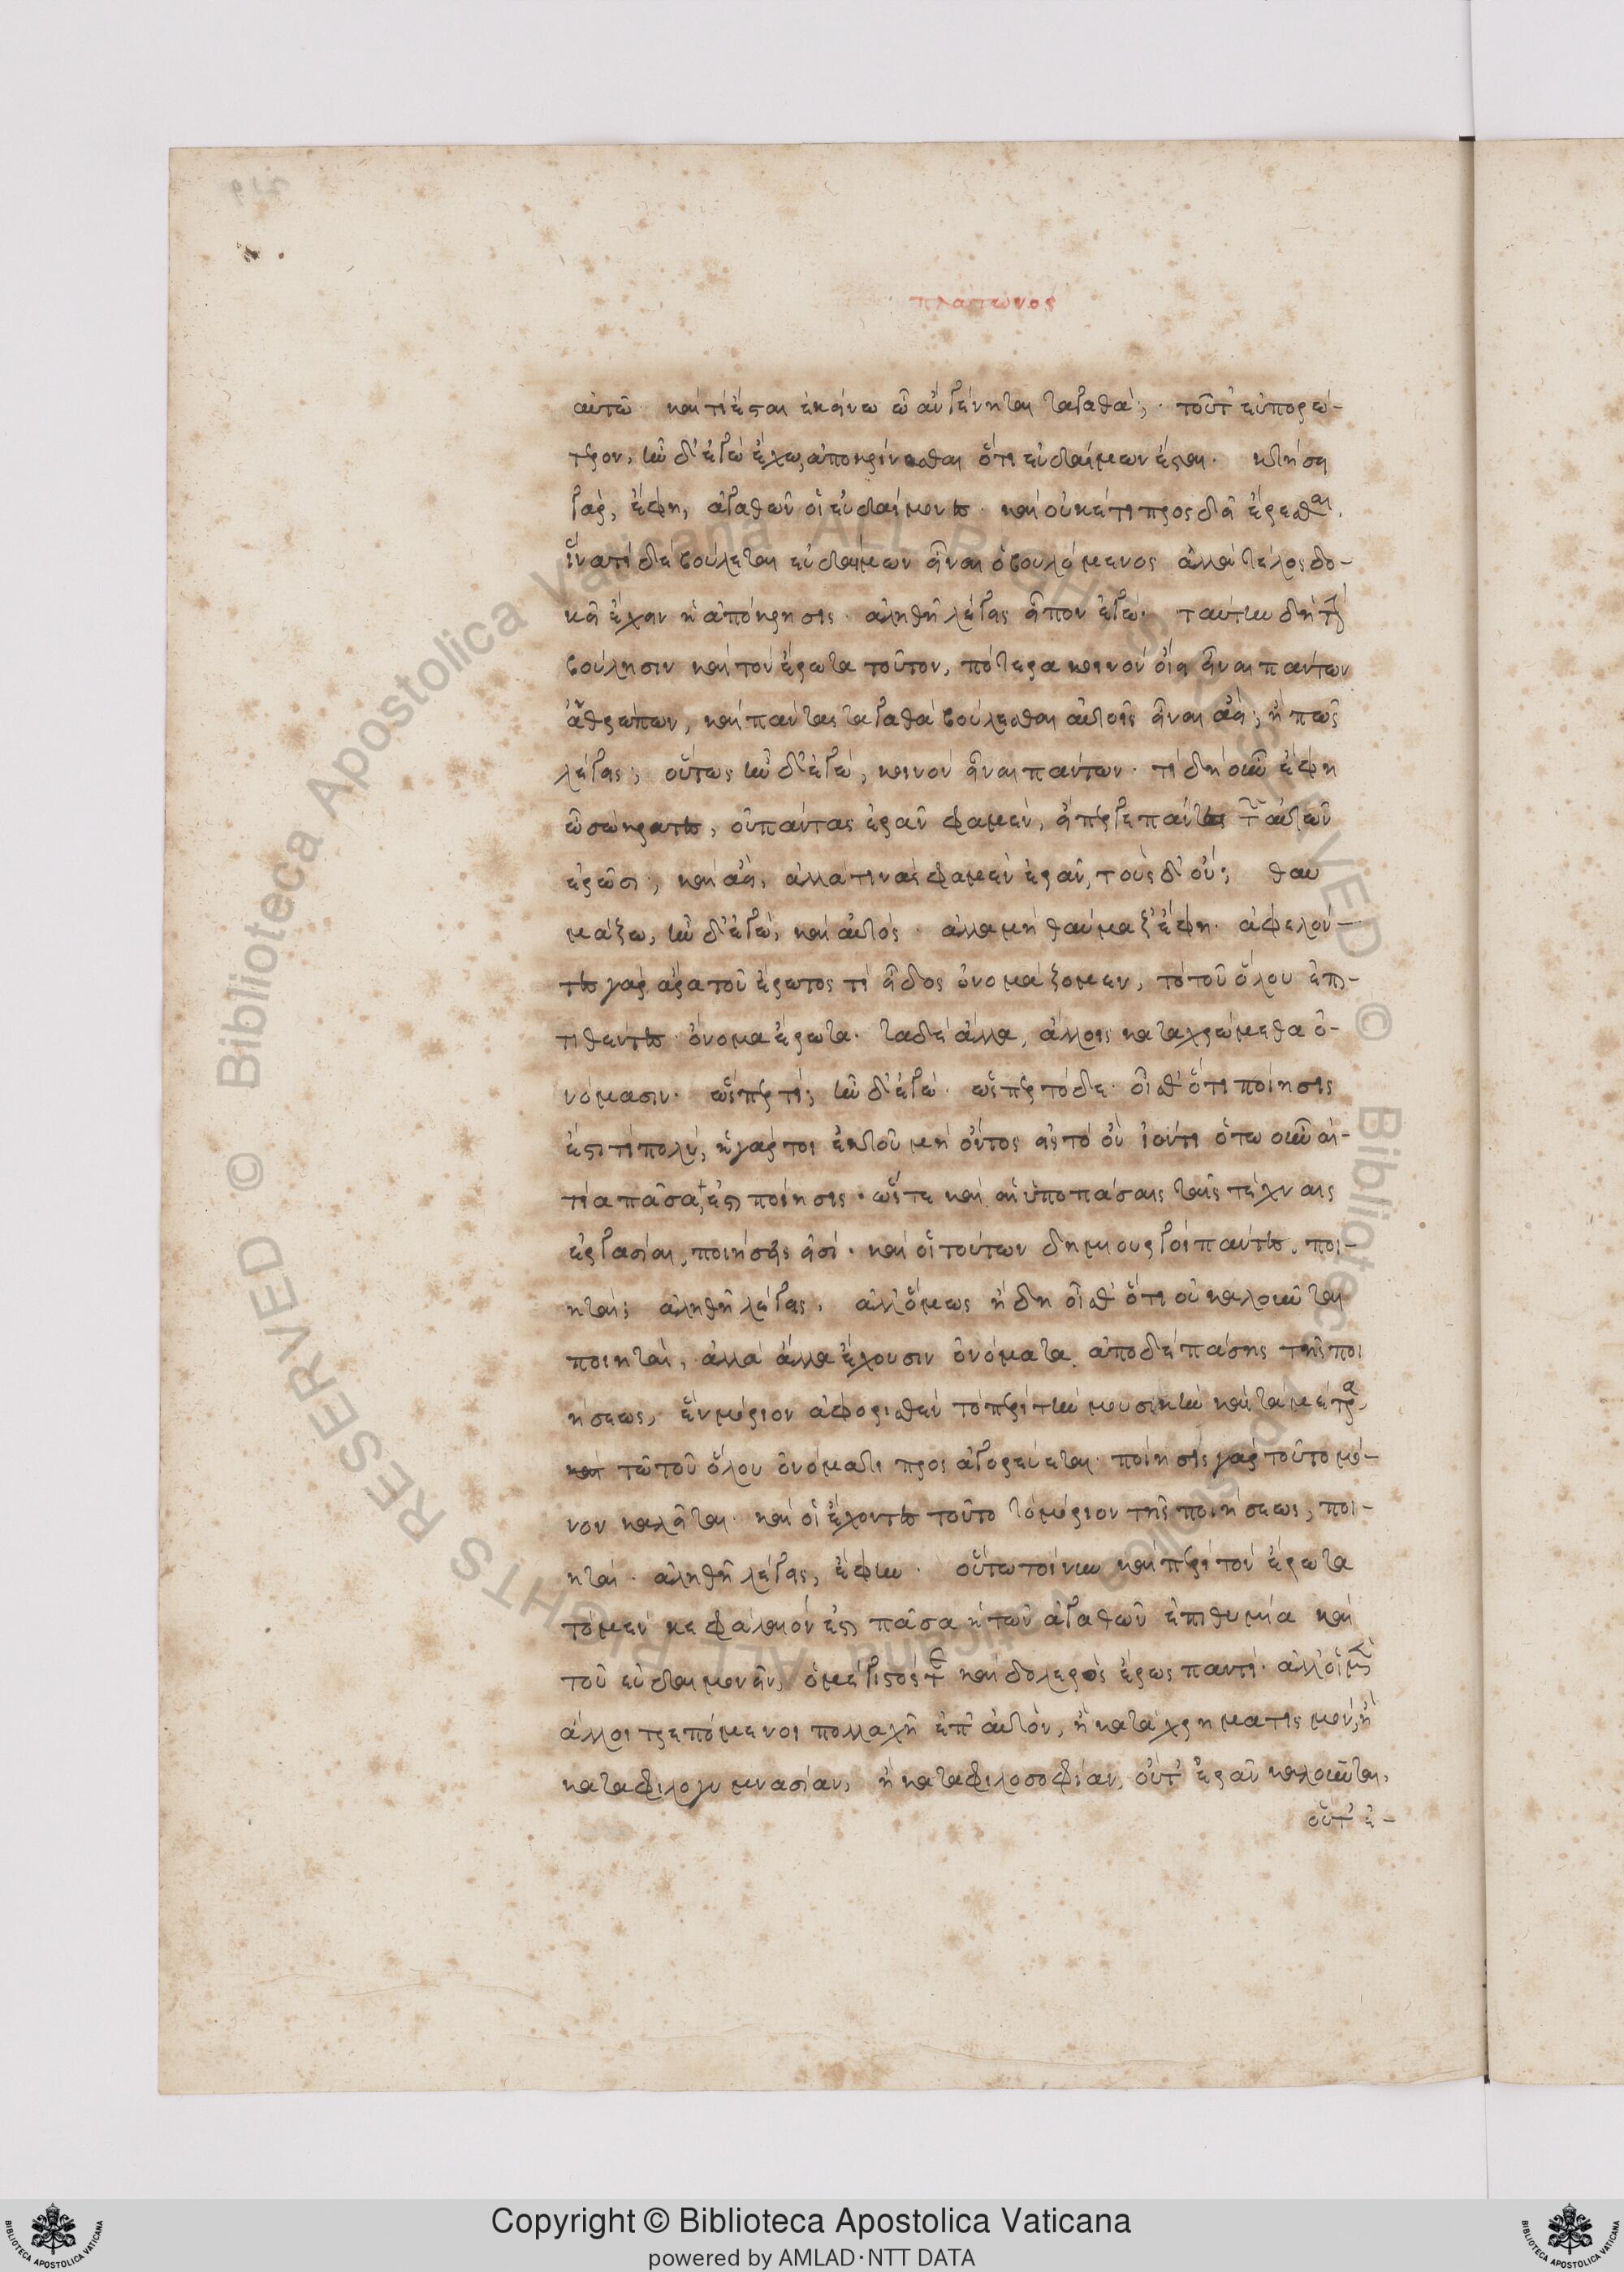 πλάτωνος
αὐτῶ· καὶ τί ἔσται ἐκείνω ὧ ἂν γένηται τἀγαθά; τοῦτ' εὐπορώ-
τερον, ἦν δ' ἐγὼ ἔχω ἀποκρίνεσθαι ὅτι εὐδαίμων ἔσται. κτήσει
γὰρ, ἔφη, ἀγαθῶν οἱ εὐδαίμονες· καὶ οὐκέτι προσδεῖ ἐρέσθαι.
ἵνα τί δὲ βούλεται εὐδαίμων εἶναι ὁ βουλόμενος ἀλλὰ τέλος δο-
κεῖ ἔχειν ἡ ἀπόκρησις· ἀληθῆ λέγεις εἶπον ἐγώ. ταύτην δὴ τὴν
βούλησιν καὶ τὸν ἔρωτα τοῦτον, πότερα κοινὸν οἴει εἶναι πάντων
ἀνθρώπων, καὶ πάντας τἀγαθὰ βούλεσθαι αὐτοῖς εἶναι ἀεί; ἢ πῶς
λέγεις; οὕτως ἦν δ' ἐγώ, κοινὸν εἶναι πάντων· τί δὴ οὖν ἔφη
ὦ σώκρατες, οὐ πάντας ἐρᾶν φαμὲν, εἴπέρ γε πάντες τῶν αὐτῶν
ἐρῶσι, καὶ ἀεί, ἀλλά τινάς φαμεν ἐρᾶν, τοὺς δ' οὔ; θαυ
μάζω, ἦν δ' ἐγώ, καὶ αὐτός· ἀλλὰ μὴ θαύμαζ' ἔφη· ἀφελόν-
τες γὰρ ἄρα τοῦ ἔρωτος τὶ εἶδος ὀνομάζομεν, τὸ τοῦ ὅλου ἐπι-
τιθέντες ὄνομα ἔρωτα· τὰ δὲ ἄλλα, ἄλλοις καταχρώμεθα ὀ-
νόμασιν· ὥσπερ τί; ἦν δ' ἐγώ· ὥσπερ τόδε· οἶσθ' ὅτι ποίησις
ἐστί τι πολύ, ἡ γάρ τοι ἐκ τοῦ μὴ ὄντος εἰς τὸ ὂν ἰόντι ὅτω οὖν αἰ-
τία πᾶσα, ἐστι ποίησις· ὥστε καὶ αἱ ὑπὸ πάσαις ταῖς τέχναις
ἐργασίαι, ποιήσεις εἰσί· καὶ οἱ τούτων δημιουργοὶ πάντες, ποι-
ηταί; ἀληθῆ λέγεις, ἀλλ' ὅμως ἤδη οἶσθ' ὅτι οὐ καλοῦνται
ποιηταί, ἀλλὰ ἄλλα ἔχουσιν ὀνόματα. ἀπὸ δὲ πάσης τῆς ποι
ήσεως, ἓν μόριον ἀφορισθὲν τὸ περὶ τὴν μουσικὴν καὶ τὰ μέτρα,
τῶ τοῦ ὅλου ὀνόματι προσαγορεύεται· ποίησις γὰρ τοῦτο μό-
νον καλεῖται· καὶ οἱ ἔχοντες τοῦτο τὸ μόριον τῆς ποιήσεως, ποι-
ηταί· ἀληθῆ λέγεις, ἔφην· οὕτω τοίνυν καὶ περὶ τὸν ἔρωτα
τὸ μὲν κεφάλαιόν ἐστι πᾶσα ἡ τῶν ἀγαθῶν ἐπιθυμία καὶ
τοῦ εὐδαιμονεῖν, ὁ μέγιστός τε καὶ δολερὸς ἔρως παντί· ἀλλ' οἱ μὲν
ἄλλοι τρεπόμενοι πολλαχῆ ἐπ' αὐτὸν, ἢ κατὰ χρηματισμὸν, ἢ
κατὰ φιλογυμνασίαν, ἢ κατὰ φιλοσοφίαν, οὔτ' ἐρᾶν καλοῦνται,
οὔτ' ἐ-